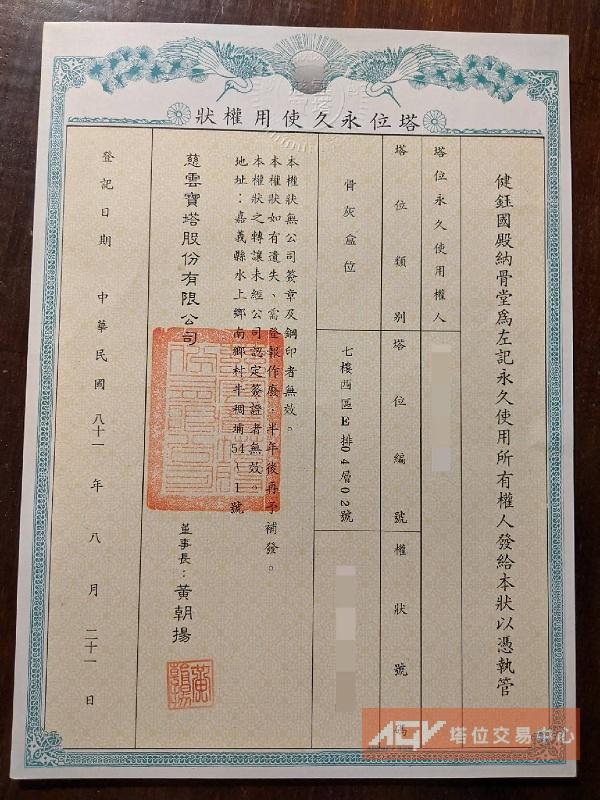 塔位永久使用權狀
健鈺國殿納骨堂為左記永久使用所有權人發給本狀以憑執管
塔位永久使用權人
塔位類別
塔位編號
權狀號碼
骨灰盒位
七樓酉區 排04層02號
本權狀無公司簽章及鋼印者無效。
本權狀如有遺失、需登報作廢,半年後再予補發。
本權狀之轉讓未經公司認定簽證者無效。
地址:嘉義縣水上鄉南鄉村牛稠埔54\1號
慈雲寶塔股份有限公司
董事長:黃朝揚
登記日期 中華民國八十一年八月二十一日
AGV 塔位交易中心